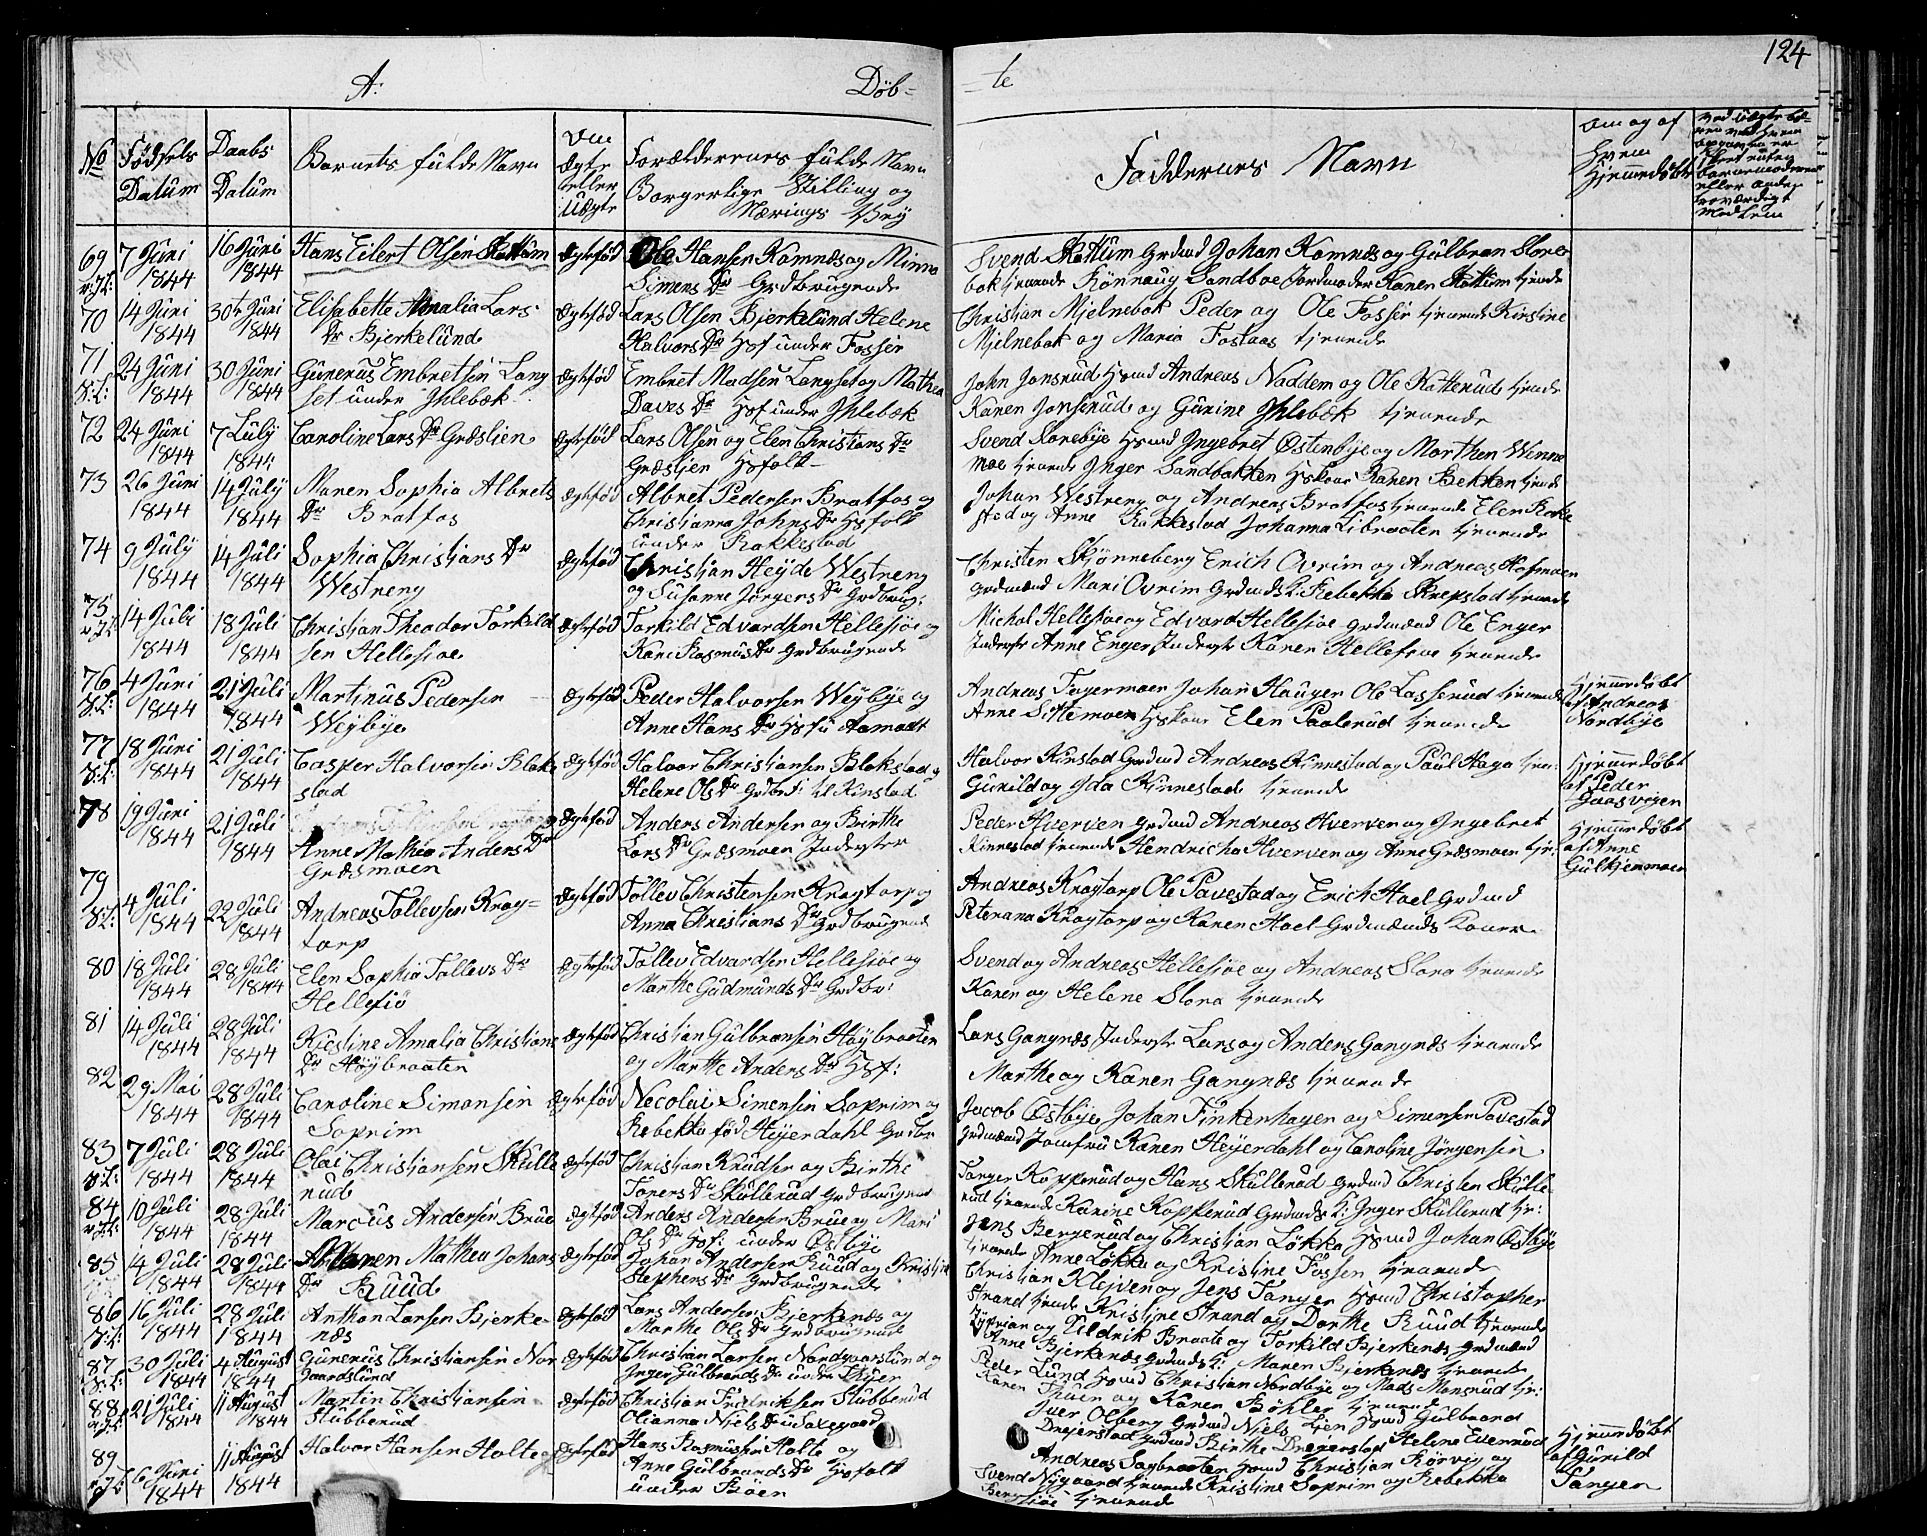 124
A: Döb= =te
No
Födsels Datum
Daabs Datum
Barnets fulde Navn
Om Ægte eller Uægte
Forældrenes fulde Navn Borgerlige Stilling og Nærings Vej
Faddernes Navn
Om og af hvem Hjemmedöbt
69 7 Juni 1844 16 Juni 1844 Hans Eilert Olsen Skottum Ægtefød Ole Hansen Komnæs og Minna
Simens Dr Grdbrugende
Svend Skottum Grdmd Johan Komnæs og Gulbran Slore
bæk tjenende Rönnaug Sandboe Jordmoder Karen Skottum tjende
70 14 Juni 1844 30te Juni 1844 Elisabethe Amalia Lars
Dr Bjerkelund Ægtefød Lars Olsen Bjerkelund Helene
Halvors Dr Hsf under Fosser
Christian Mjelnebæk Peder og Ole Fosser tjenende Kirstine
Mjelnebæk og Maria Fostaas tjenende
71 24 Juni 1844 30 Juni 1844 Gunerus Embretsen Lang
set under Ihlebæk Ægtefød Embret Madsen Langset og Mathea
Daves Dr Hsf under Ihlebæk
John Jonsrud Hsmd Andreas Naddem og Ole Katterud tjende
Karen Jonserud og Gurine Ihlebæk tjenende
72 24 Juni 1844 7 July 1844 Caroline Lars Dr Græslien Ægtefød Lars Olsen og Elen Christians Dr
Græslien Hsfolk
Svend Slorebye Hsmd Ingebret Østenbye og Morthen Winne
moe tjenende Inger Sandbakken Hskone Karen Bekken tjende
73 26 Juni 1844 14 July 1844 Maren Sophia Albrets
Dr Bratfos Ægtefød Albret Pedersen Bratfos og
Christianna Johns Dr Hsfolk
under Rakkestad
Johan Westreng og Andreas Bratfos tjenende Elen Rakke
stad og Anne Rakkestad Johanna Libraaten tjenende
74 9 July 1844 14 Juli 1844 Sophia Christians Dr
Westreng Ægtefød Christian Heyde Westreng
og Susanne Jørgens Dr Grdbrug:
Christen Skjønneberg Erich Ovrim og Andreas Hofmoen
grdmænd Mari Ovrim Grdmds K: Rebekka Skrepstad tjenende
75 14 Juli 1844 18 Juli 1844 Christian Theodor Torkild
sen Hellesiøe Ægtefød Torkild Edvardsen Hellesiøe og
Kari Rasmus Dr Grdbrugende
Michal Hellesiøe og Edvard Hellesiøe grdmænd Ole Enger
Inderste Anne Enger Inderste Karen Hellesiøe tjenende
76 4 Juni 1844 21 Juli 1844 Martinus Pedersen
Weybye Ægtefød Peder Halvorsen Weybye og
Anne Hans Dr Hsf u Aamodt
Andreas Fagermoen Johan Hauger Ole Lasserud tjenende
Anne Sittemoen Hskone Elen Paalsrud tjenende
Hjemmedöbt
af Andreas
Nordbye
77 18 Juni 1844 21 Juli 1844 Casper Halvorsen Blake
stad Ægtefød Halvor Christiansen Blakstad og
Helene Ols Dr
Halvor Kinstad Grdmd Andreas Kinnestad og Paul Haga
Gunild og Ida Kinnestad tjenende
Hjemmedöbt
af Peder
Gaasvigen
78 19 Juni 1844 21 Juli 1844
Anne Mathea Anders Dr
Græsmoen Ægtefød Anders Andersen og Birthe
Lars Dr Græsmoen Inderster
Peder Hverven Grdmd Andreas Hverven og Ingebret
Kinnestad tjenende Hendricha Hverven og Anne Græsmoen tje:
Hjemmedöbt
af Anne
Gulkjenmoen
79 4 Juli 1844 22 Juli 1844 Andreas Tollevsen Krog=
torp Ægtefød Tollev Christensen Krogtorp og
Anna Christians Dr Grdbrugend
Andreas Krogtorp Ole Pavestad og Erich Hoel Grdmd
Peternana Krogtorp og Karen Hoel Grdmænds Koner
80 18 Juli 1844 28 Juli 1844 Elen Sophia Tollevs Dr
Hellesiö Ægtefød Tollev Edvardsen Hellesiøe og
Marthe Gudmunds Dr Grdbr:
Svend og Andreas Hellesiøe og Andreas Slora tjenende
Karen og Helene Slora tjenende
81 14 Juli 1844 28 Juli 1844 Kirstine Amalia Christians
Dr Höybraaten Ægtefød Christian Gulbransen Höybraaten
og Marthe Anders Dr Hsf:
Lars Gangnæs Inderste Lars og Anders Gangnæs tjenende
Marthe og Karen Gangnæs tjenende
82 29 Mai 1844 28 Juli 1844 Caroline Simensen
Soprim Ægtefød Necolai Simensen Soprim og
Rebekka fød Heyerdahl Grdbr
Jacob Østbye Johan Finkenhagen og Simensen Pavestad
Grdmænd Jomfru Karen Heyerdahl og Caroline Jørgensen
83 7 Juli 1844 28 Juli 1844 Olai Christiansen Skulle
rud Ægtefød Christian Knudsen og Birthe
Torers Dr Skullerud Grdbrugende
Torger Kopperud og Hans Skullerud Grdmd Christen Skulle
rud tjenende Karine Kopperud Grdmds K: Inger Skullerud tje:
84 10 Juli 1844 28 Juli 1844 Marcus Andersen Brue Ægtefød Anders Andersen Brue og Mari
Ols Dr Hsf: under Østbye
Jens Bergerud og Christian Løkka Hsmd Johan Østbye
tjenende Anne Løkka og Kristine Fossen tjenende
85 14 Juli 1844 28 Juli 1844 Maren Mathea Johans
Dr Ruud Ægtefød Johan Andersen Ruud og Kristine
Stephens Dr Grdbrugende
Christian Klejven og Jens Tanger Hsmd Christopher
Strand tjende Kristine Strand og Dorthe Ruud tjenende
86 16 Juli 1844 28 Juli 1844 Anthon Larsen Bjerke
næs Ægtefød Lars Andersen Bjerkenæs og
Marthe Ols Dr Grdbrugende
Braate og Torkild Bjerkenæs Grdmænd
Anne Bjerkenæs Grdmds K: Maren Bjerkenæs tjenende
87 30 Juli 1844 4 August 1844 Gunerius Christiansen Nor
gaardslund Ægtefød Christian Larsen Nordgaardslund og
Inger Gulbrands Dr under Thuer
Peder Lund Hsmd Christian Nordbye og Mads Monsrud tje:
Karen Thuen og Karen Bøhler tjenende
88 21 Juli 1844 11 August 1844 Martin Christiansen
Stubberud Ægtefød Christian Fredriksen Stubberud
Olianna Niels Dr
Iver Olberg Grdmd Niels Lien Hsmd Gulbrand
Drejerstad Grdmd Birthe Drejerstad Helene Evenrud
89 6 Juni 1844 11 August 1844 Halvor Hansen Holte Ægtefød Hans Rasmussen Holte og
Anne Gulbrands Dr Hsfolk
under Böen
Andreas Sagbraaten Hsmd Christian Körvig og
Svend Nygaard tjenende Kristine Soprim og Rebekka
Bergsiøe tjenende
Hjemmedöbt
af Gunild
Tangen